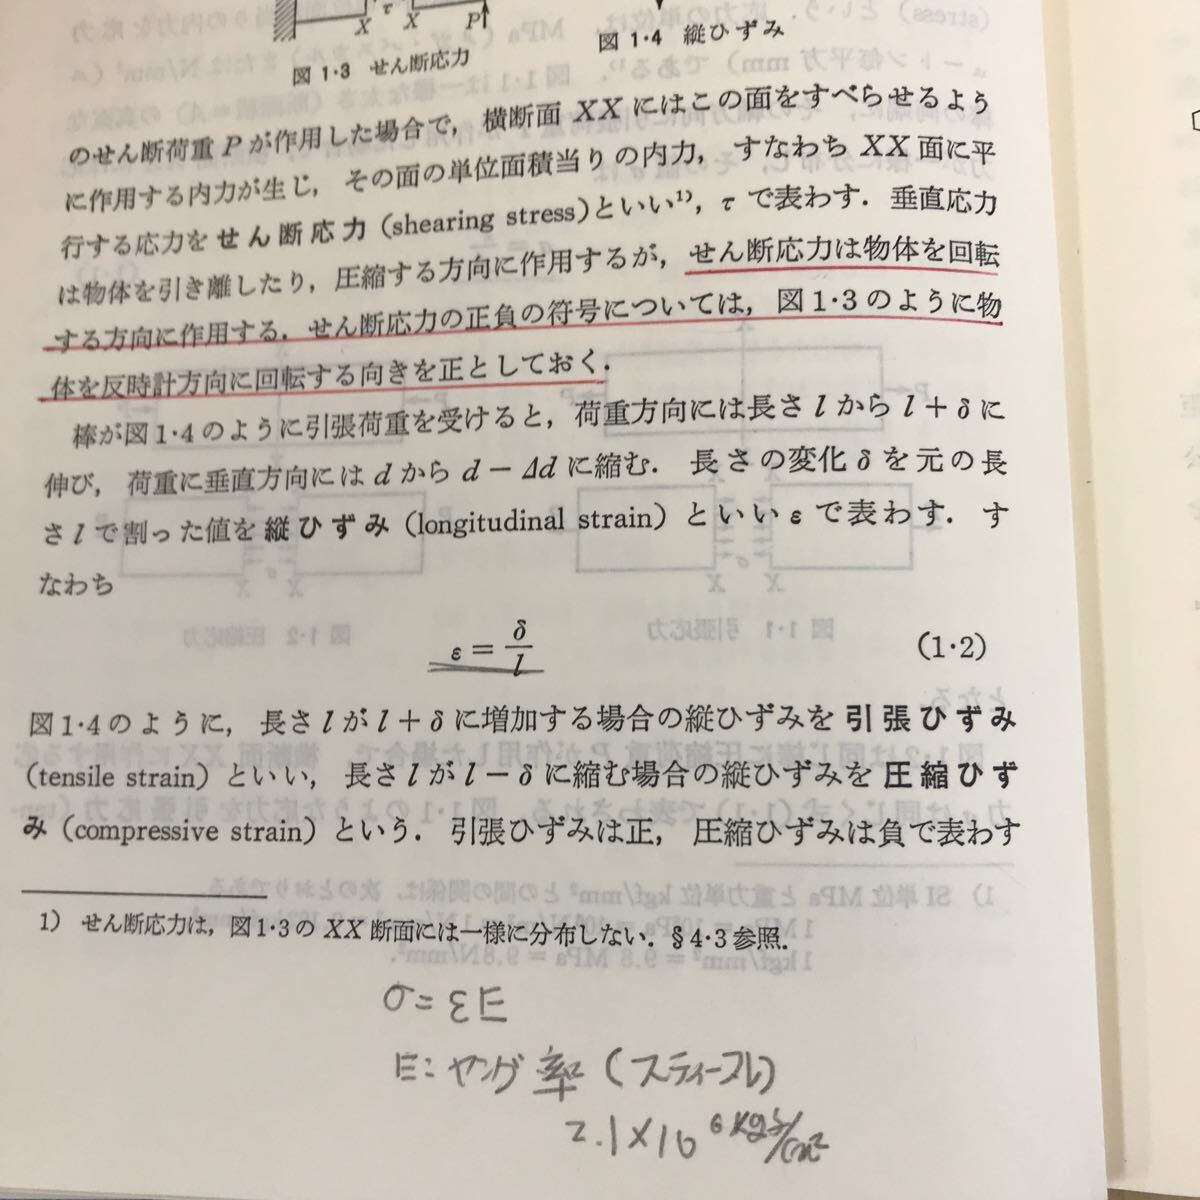 X τ X P
図1・3 せん断応力
図1・4 縦ひずみ
のせん断荷重Pが作用した場合で，横断面XXにはこの面をすべらせるよう
に作用する内力が生じ，その面の単位面積当りの内力，すなわちXX面に平
行する応力をせん断応力(shearing stress)といい¹⁾，τで表わす．垂直応力
は物体を引き離したり，圧縮する方向に作用するが，せん断応力は物体を回転
する方向に作用する．せん断応力の正負の符号については，図1・3のように物
体を反時計方向に回転する向きを正としておく．
棒が図1・4のように引張荷重を受けると，荷重方向には長さlからl+δに
伸び，荷重に垂直方向にはdからd−Δdに縮む．長さの変化δを元の長
さlで割った値を縦ひずみ(longitudinal strain)といいεで表わす．す
なわち
ε = δ/l (1・2)
図1・4のように，長さlがl+δに増加する場合の縦ひずみを引張ひずみ
(tensile strain)といい，長さlがl−δに縮む場合の縦ひずみを圧縮ひず
み(compressive strain)という．引張ひずみは正，圧縮ひずみは負で表わす
1) せん断応力は，図1・3のXX断面には一様に分布しない．§4・3参照．
σ=εE
E: ヤング率(スティーフレ)
2.1×10⁶ kgf/cm²